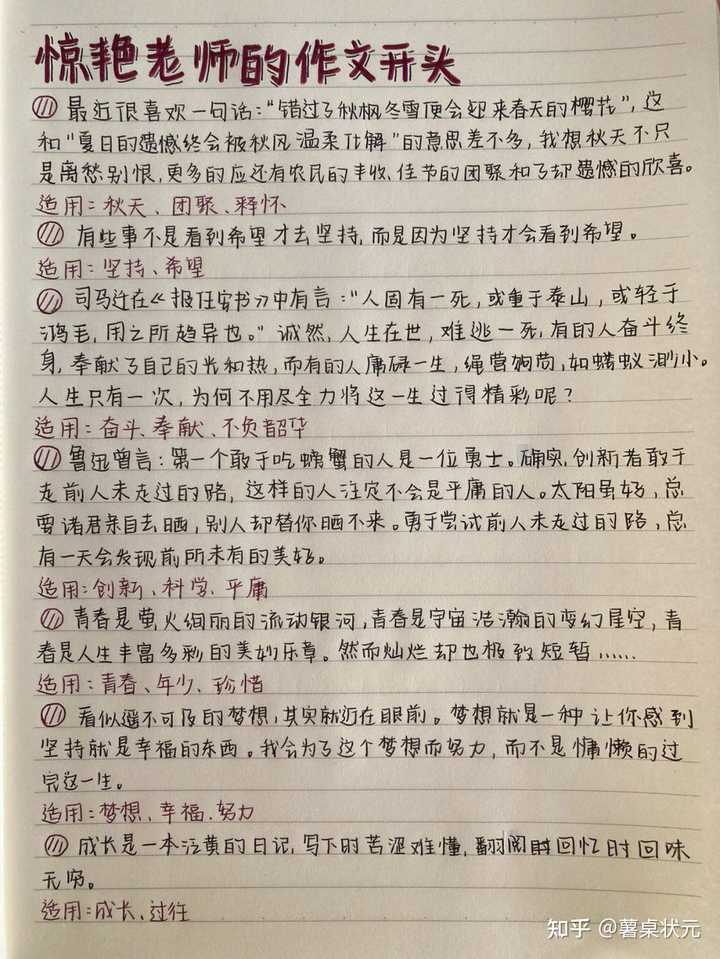 惊艳老师的作文开头
最近很喜欢一句话:“错过了秋枫冬雪便会迎来春天的樱花”,这
和“夏日的遗憾终会被秋风温柔化解”的意思差不多,我想秋天不只
是离愁别恨,更多的应还有农民的丰收、佳节的团聚和了却遗憾的欣喜。
适用:秋天、团聚、释怀
有些事不是看到希望才去坚持,而是因为坚持才会看到希望。
适用:坚持、希望
司马迁在《报任安书》中有言:“人固有一死,或重于泰山,或轻于
鸿毛,用之所趋异也。”诚然,人生在世,难逃一死,有的人奋斗终
身,奉献了自己的光和热,而有的人庸碌一生,绳营狗苟,如蝼蚁渺小。
人生只有一次,为何不用尽全力将这一生过得精彩呢?
适用:奋斗、奉献、不负韶华
鲁迅曾言:第一个敢于吃螃蟹的人是一位勇士。确实,创新者敢于
走前人未走过的路,这样的人注定不会是平庸的人。太阳虽好,总
要诸君亲自去晒,别人却替你晒不来。勇于尝试前人未走过的路,总
有一天会发现前所未有的美好。
适用:创新、科学、平庸
青春是萤火绚丽的流动银河,青春是宇宙浩瀚的变幻星空,青
春是人生丰富多彩的美妙乐章。然而灿烂却也极致短暂……
适用:青春、年少、珍惜
看似遥不可及的梦想,其实就近在眼前。梦想就是一种让你感到
坚持就是幸福的东西。我会为了这个梦想而努力,而不是慵懒的过
完这一生。
适用:梦想、幸福、努力
成长是一本泛黄的日记,写下时苦涩难懂,翻阅时回忆时回味
无穷。
适用:成长、过往
知乎 @薯桌状元